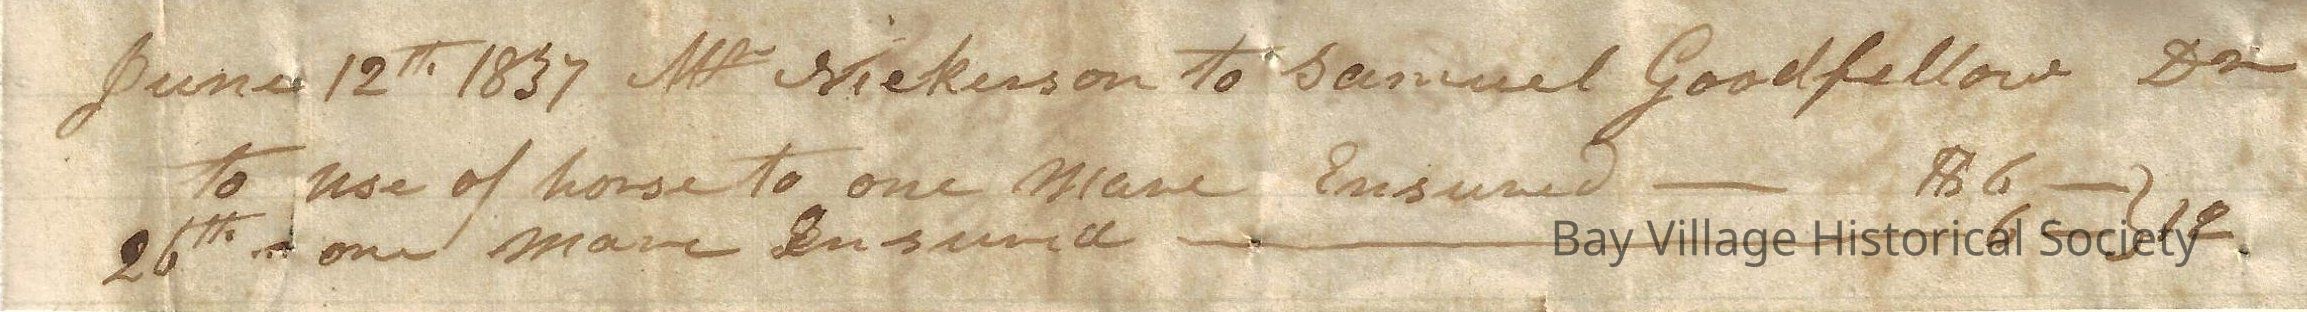 June 12th 1837 Mr Nickerson to Samuel Goodfellow Dr
to use of horse to one mare Ensured — $6 —
26th - one mare Ensured — 6 — } 12.
Bay Village Historical Society